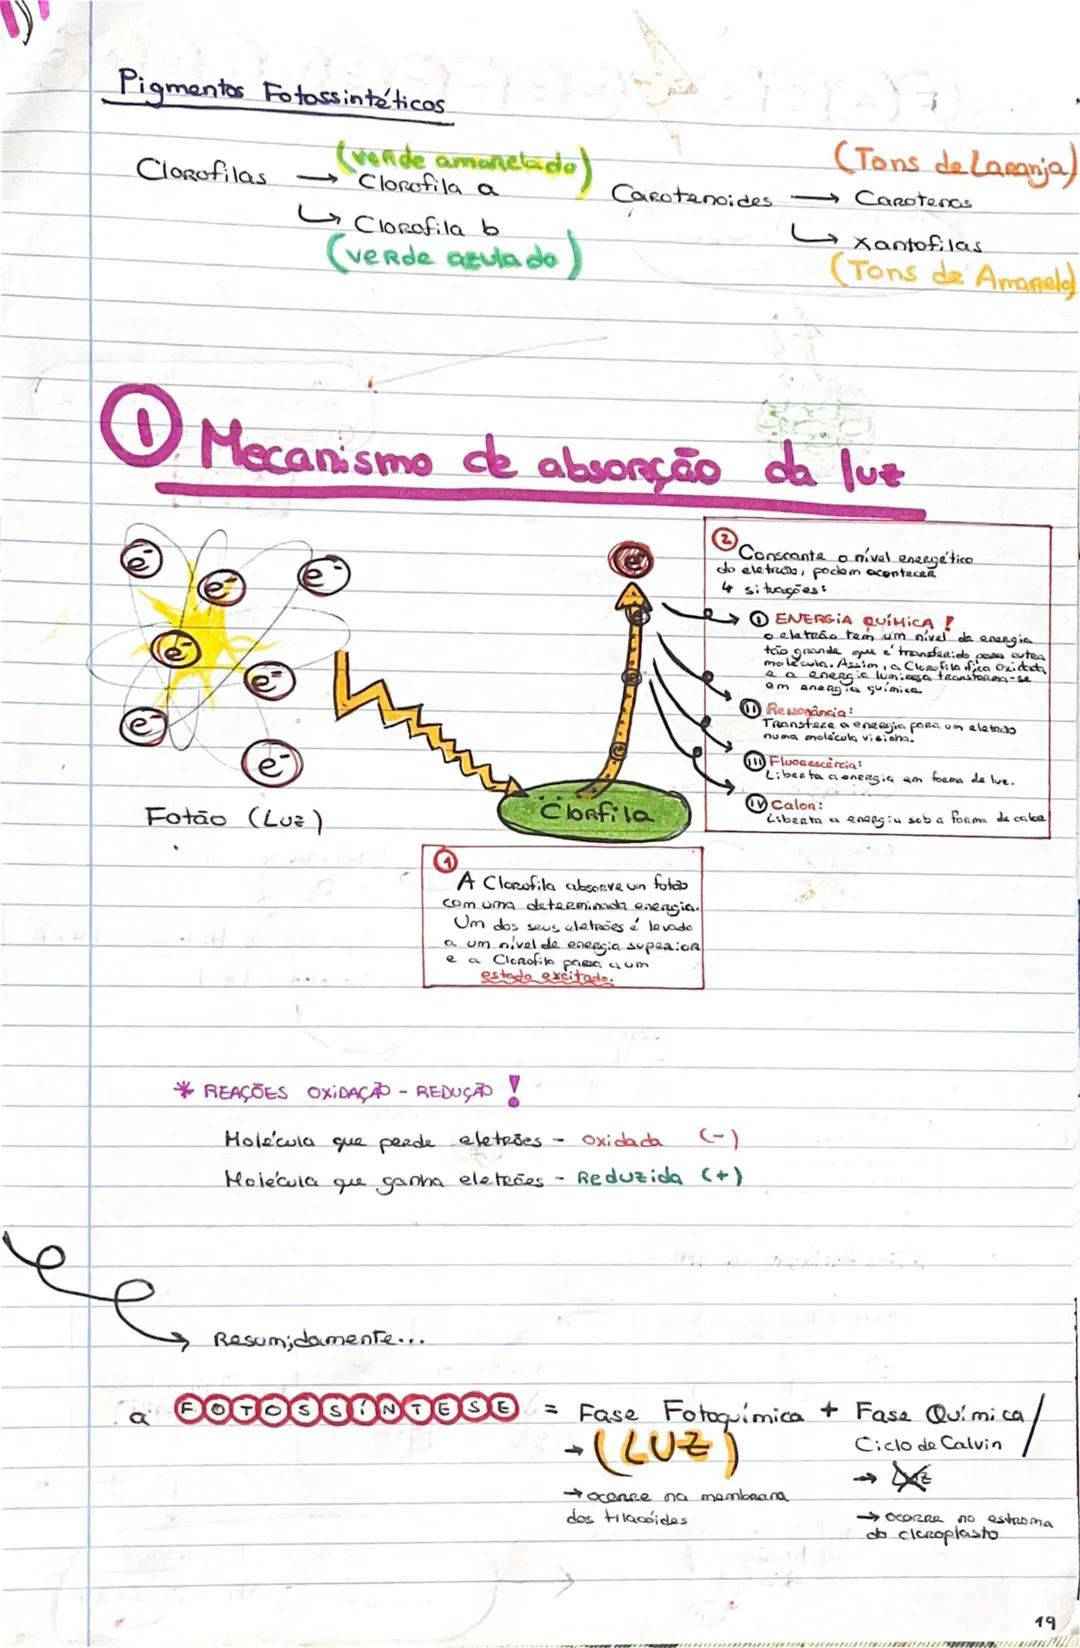 Pigmentos Fotossintéticos
(verde amarelado)
(Tons de Laranja)
Clorofilas → Clorofila a
Carotenoides → Carotenos
↳ Clorofila b
↳ xantofilas
(verde azulado)
(Tons de Amarelo)
① Mecanismo de absorção da luz
e-
e-
e-
e-
e-
e-
e-
Fotão (Luz)
e-
Clorfila
②
Consoante o nível energético
do eletrão, podem acontecer
4 situações:
Ⓘ ENERGIA QUÍMICA !
o eletrão tem um nível de energia
tão grande que é transferido para outra
molécula. Assim, a Clorofila fica Oxidada
e a energia luminosa transforma-se
em energia química.
ⓘⓘ Ressonância:
Transfere a energia para um eletrão
numa molécula vizinha.
ⓘⓘⓘ Fluorescência:
Liberta a energia em forma de luz.
ⒾⓋ Calor:
Liberta a energia sob a forma de calor
①
A Clorofila absorve um fotão
com uma determinada energia.
Um dos seus eletrões é levado
a um nível de energia superior
e a Clorofila passa a um
estado excitado.
* REAÇÕES OXIDAÇÃO - REDUÇÃO !
Molécula que perde eletrões - Oxidada (-)
Molécula que ganha eletrões - Reduzida (+)
→ Resumidamente...
a FOTOSSÍNTESE = Fase Fotoquímica + Fase Química /
→ (LUZ)
Ciclo de Calvin
→ Luz
→ ocorre na membrana
dos tilacóides
→ ocorre no estroma
do cloroplasto
19